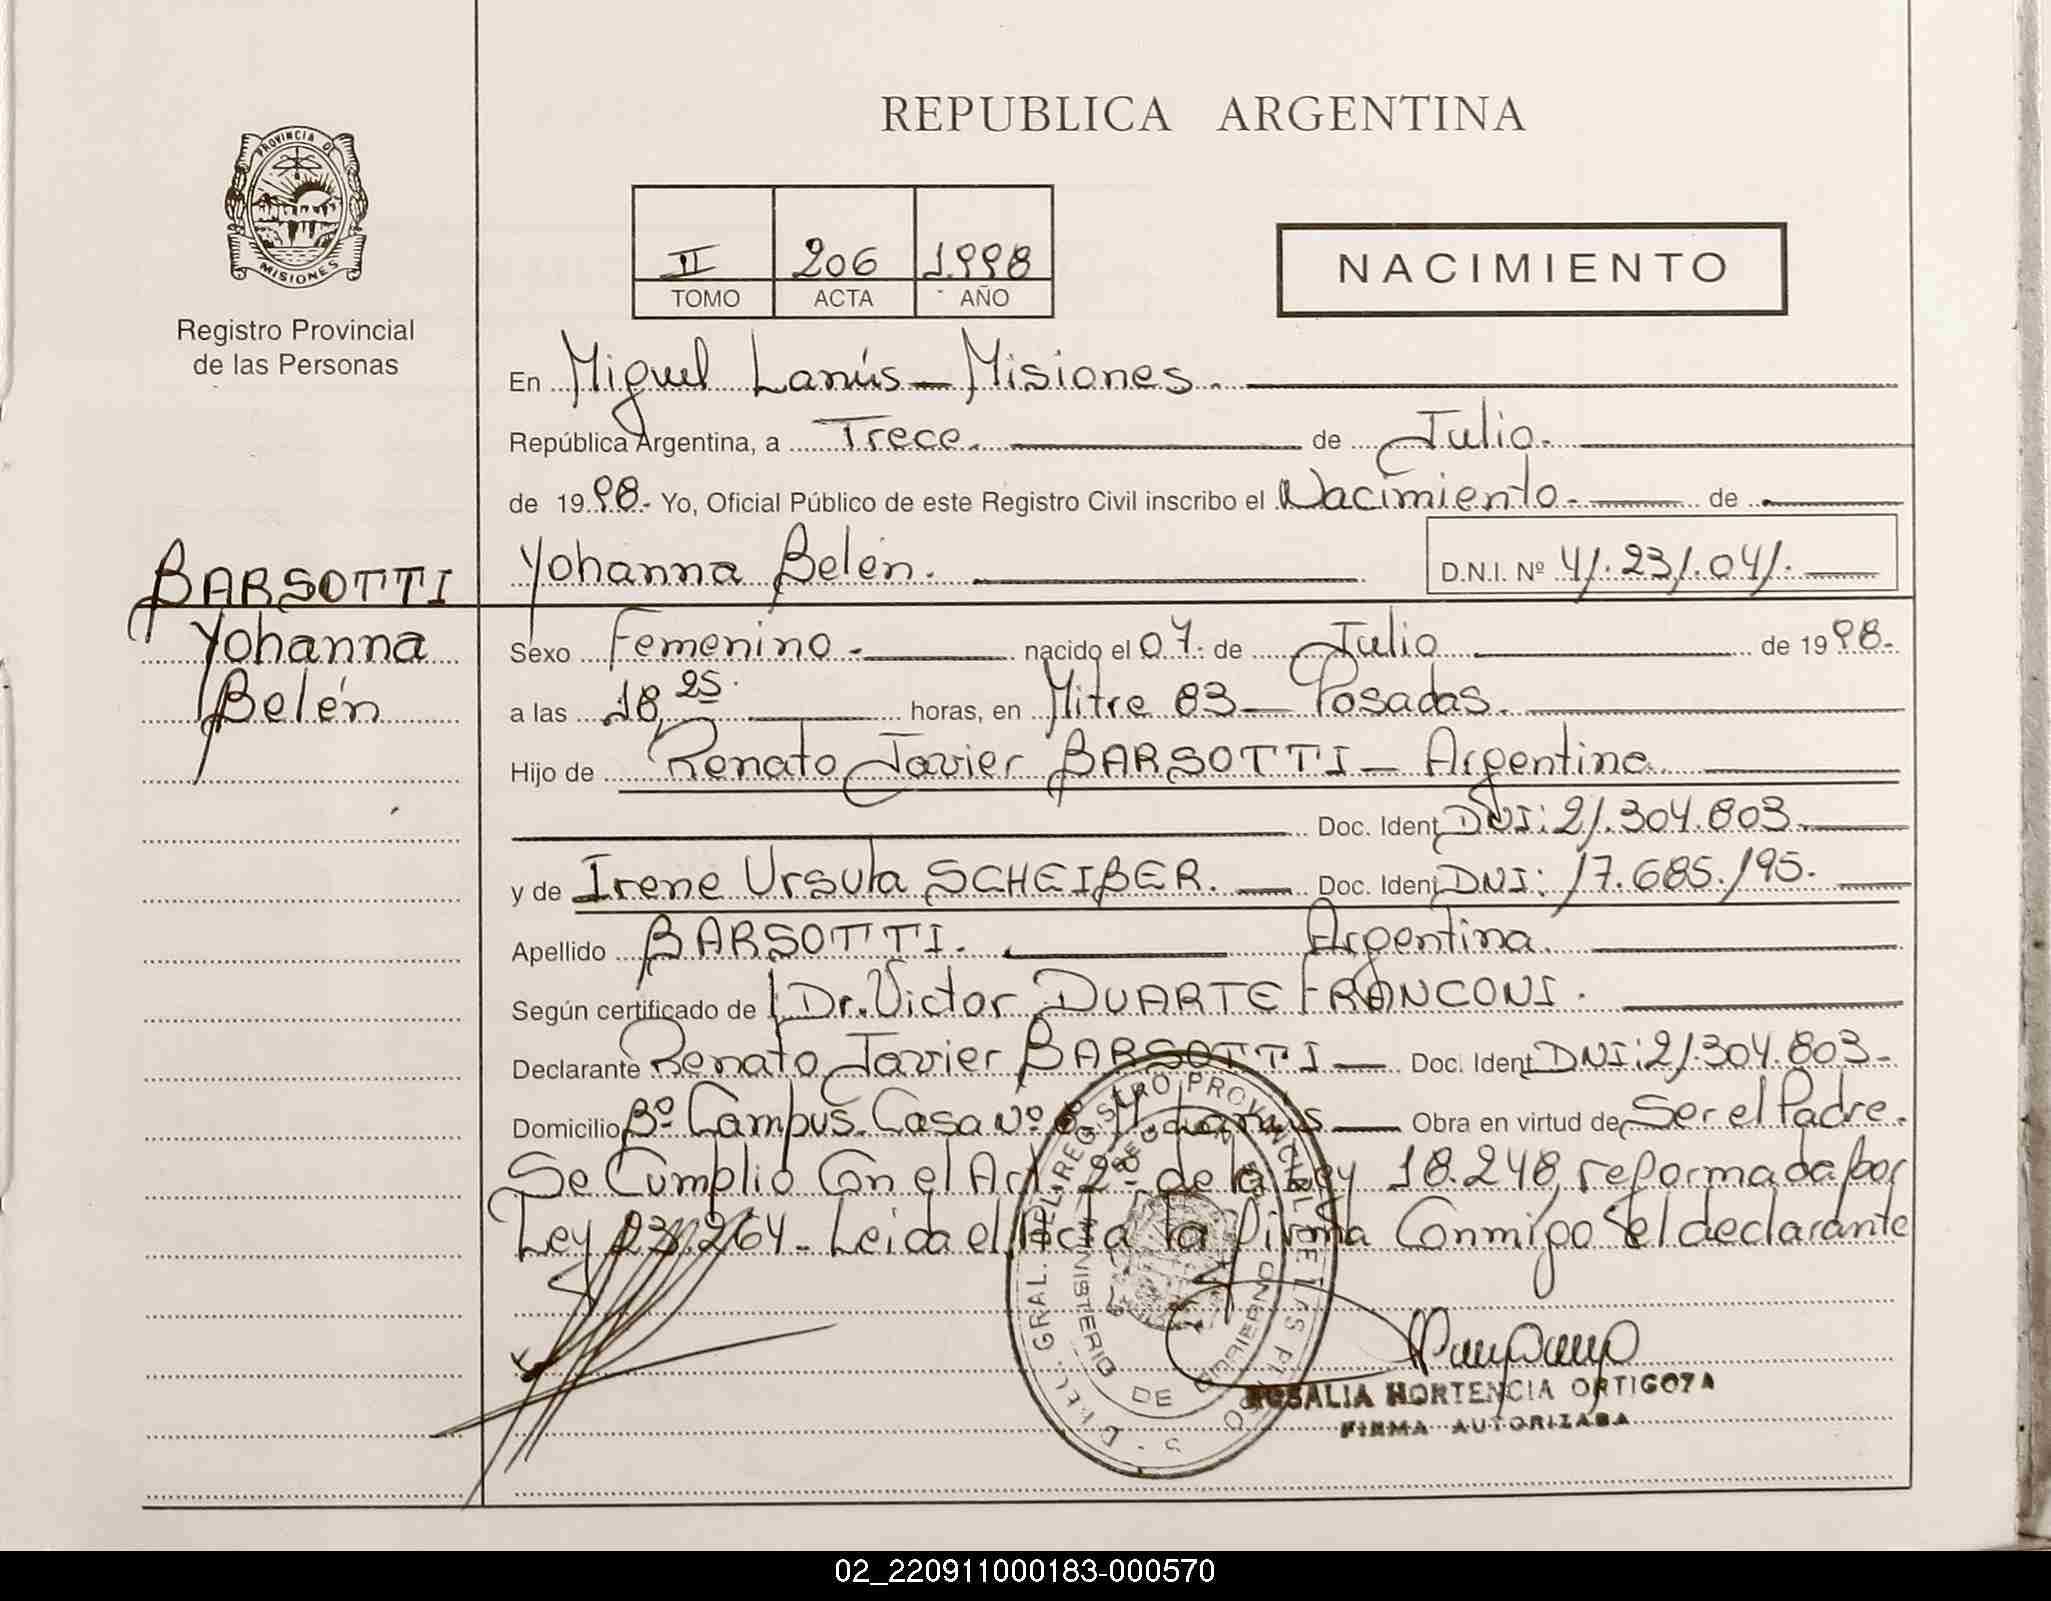 REPUBLICA ARGENTINA
PROVINCIA DE
MISIONES
Registro Provincial
de las Personas
II 206 1.998
TOMO ACTA AÑO
NACIMIENTO
En Miguel Lanús - Misiones.
República Argentina, a Trece. de Julio.
de 1998.- Yo, Oficial Público de este Registro Civil inscribo el Nacimiento.- de
Yohanna Belén. D.N.I. Nº 41.231.041.
BARSOTTI
Yohanna
Belén
Sexo Femenino.- nacido el 07. de Julio de 1998.-
a las 18,25. horas, en Mitre 83 - Posadas.
Hijo de Renato Javier BARSOTTI - Argentino.
Doc. Ident. DNI: 21.304.803.
y de Irene Ursula SCHEIBER. Doc. Ident. DNI: 17.685.195.
Apellido BARSOTTI. Argentina.
Según certificado de Dr. Victor DUARTE FRANCONI.
Declarante Renato Javier BARSOTTI - Doc. Ident. DNI: 21.304.803.-
Domicilio Bº Campus. Casa Nº M. Lanús - Obra en virtud de Ser el Padre.
Se Cumplio Con el Art. 2º de la Ley 18.248, reformada por
Ley 23.264. Leida el Acta la firma Conmigo el declarante
DIREC. GRAL. DEL REGISTRO PROVINCIAL DE LAS PERSONAS
MINISTERIO DE GOBIERNO
ROSALIA HORTENCIA ORTIGOZA
FIRMA AUTORIZADA
02_220911000183-000570